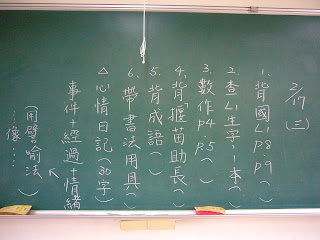 2/17 (三)
1. 背國L1 P.8 P.9 ( )
2. 查L1生字、一本 ( )
3. 數作P4、P.5 ( )
4. 背「揠苗助長 ( )
5. 背成語 ( )
6. 帶書法用具 ( )
△心情日記 (80字)
事件+經過+情緒
(用譬喻法)
…像……